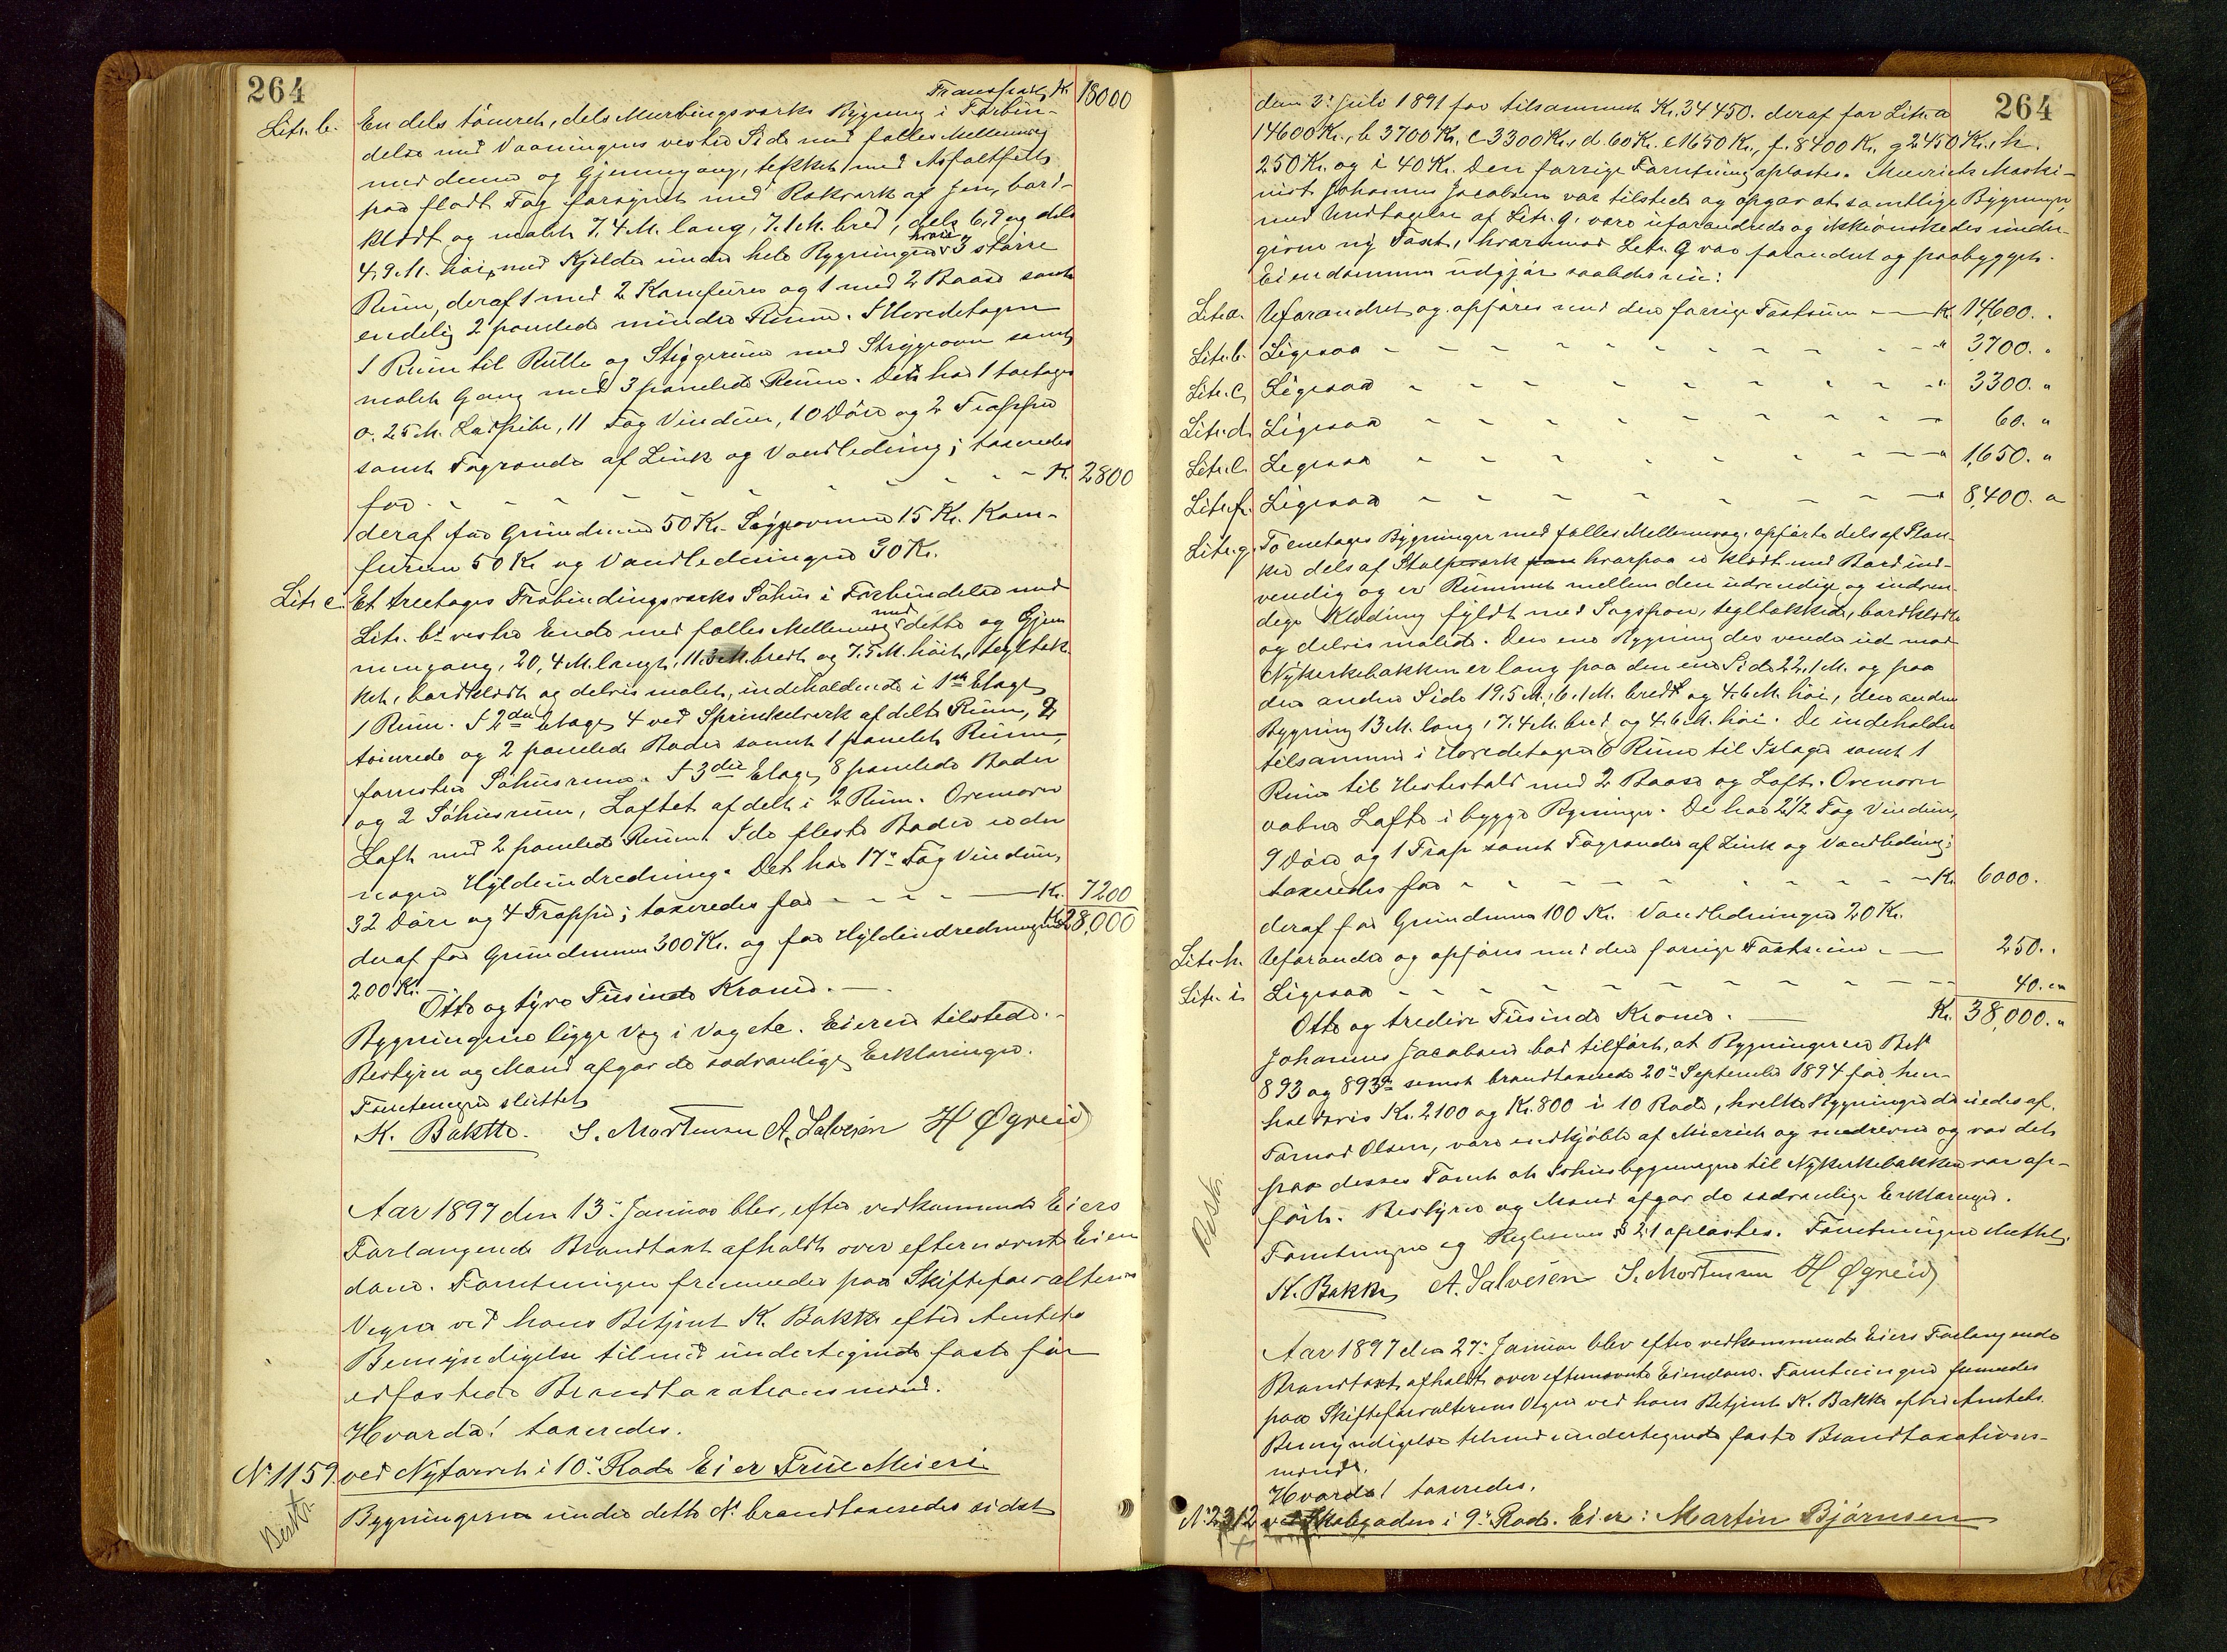 264
Transport Kr. 18000
Litr. b. En dels tømret, dels Murbingsværks Bygning i Forbin-
delse med Vaaningens vestre Side med fælles Mellemvæg
med denne og Gjennemgang, tækket med Asfaltfilt
paa fladt Tag forsynet med Rækværk af Jern, bord-
klædt og malet 7,4 M. lang, 7.1 M. bred, dels 6,9 og dels
4,9 M. høi, med Kjelder under hele Bygningen hvori 3 større
Rum, deraf 1 med 2 Komfurer og 1 med 2 Baase samt
endelig 2 panelede mindre Rum. I Hovedetagen
1 Rum til Rulle og Strygerum med Strygeovn samt
malet Gang med 3 panelede Rum. Det har 1 toetages
0.25 M. Ladpibe, 11 Fag Vinduer, 10 Døre og 2 Trapper
samt Tagrende af Zink og Vandledning; taxeredes
for - - - - - - - - Kr. 2800
deraf for Grundmuren 50 Kr. Strygeovnen 15 Kr. Kom-
furen 50 Kr. og Vandledningen 30 Kr.
Litr. c. Et treetages Trebindingsværks Søhus i Forbindelse med
Litr. b's vestre Ende med fælles Mellemvæg med dette og Gjen
nemgang, 20,4 M. langt, 11.3 M. bredt og 7.5 M. høit, tegltæk-
ket, bordklædt og delvis malet, indeholdende i 1ste Etage
1 Rum. I 2den Etage 4 ved Sprinkelverk afdelte Rum, 2
tømrede og 2 panelede Boder samt 1 panelet Rum,
forresten Søhusrum. I 3die Etage 8 panelede Boder
og 2 Søhusrum, Loftet afdelt i 2 Rum. Ovenover
Loft med 2 panelede Rum. I de fleste Boder er der
nogen Hyldeindredning. Det har 17 Fag Vinduer,
32 Døre og 4 Trapper; taxeredes for - - - - Kr. 7200
deraf for Grundmuren 300 Kr. og for Hyldeindredningen Kr. 28,000
200 Kr.
Otte og tyve Tusinde Kroner. —
Bygningerne ligge Væg i Væg etc. Eieren tilstede. -
Bestyrer og Mænd afgav de sædvanlige Erklæringer.
Forretningen sluttet
K. Bakke. S. Mortensen A. Salvesen H Øgreid
Aar 1897 den 13. Januar blev efter vedkommende Eiers
Forlangende Brandtaxt afholdt over efternævnte Eien
dom. Forretningen fremmedes paa Skifteforvalterens
Vegne ved hans Betjent K. Bakke efter Amtets
Bemyndigelse tilmed undertegnede faste før
edfæstede Brandtaxationsmænd.
Hvorda! taxeredes.
No 1159. ved Nytorvet i 10. Rode Eier Frue Meieri
Bestr.
Bygningerne under dette No brandtaxeredes sidst
264
den 3. Juli 1891 for tilsammen Kr. 34450. deraf for Litr. a
14600 Kr., b 3700 Kr. c 3300 Kr., d. 60 Kr. e 1650 Kr., f. 8400 Kr. g 2450 Kr., h.
250 Kr. og i 40 Kr. Den forrige Forretning oplæstes. Meieriets Maski-
nist Johannes Jacobsen var tilstede og opgav at samtlige Bygninger,
med Undtagelse af Litr. g. vare uforandrede og ikke ønskedes under-
given ny Taxt, hvorimod Litr. g var forandret og paabygget.
Eiendommen udgjør saaledes nu:
Litr. a. Uforandret og opføres med den forrige Taxtsum — Kr. 14,600. "
Litr. b. Ligesaa - - - - - - - " 3700. "
Litr. c. Ligesaa - - - - - - - " 3300. "
Litr. d. Ligesaa - - - - - - - 60. "
Litr. e. Ligesaa - - - - - - - " 1,650. "
Litr. f. Ligesaa - - - - - - - " 8,400. "
Litr. g. To enetages Bygninger med fælles Mellemvæg, opførte dels af Plan-
ker dels af Stolpeværk hvorpaa er klædt med Bord ind-
vendig og er Rummet mellem den udvendige og indven-
dige Klædning fyldt med Sagspon, tegltækkede, bordklædte
og delvis malede. Den ene Bygning der vender ud mod
Nykirkebakken er lang paa den ene Side 22,1 M. og paa
den anden Side 19.5 M., 6.1 M. bredt og 4.6 M. høi, den anden
Bygning 13 M. lang, 7.4 M. bred og 4.6 M. høi. De indeholder
tilsammen i Hovedetagen 6 Rum til Islager samt 1
Rum til Hestestald med 2 Baase og Loft. Ovenover
aabne Lofte i begge Bygninger. De har 2 1/2 Fag Vinduer,
9 Døre og 1 Trap samt Tagrender af Zink og Vandledning;
taxeredes for - - - - - - - Kr. 6000.
deraf for Grundmuren 100 Kr. Vandledningen 20 Kr.
Litr. h. Uforandret og opføres med den forrige Taxtsum — 250. "
Litr. i. Ligesaa - - - - - - - 40. "
Otte og tredive Tusinde Kroner. — Kr. 38,000. "
Johannes Jacobsen bad tilført, at Bygningerne
893 og 893a senest brandtaxerede 20. September 1894 for hen-
holdsvis Kr. 2100 og Kr. 800 i 10 Rode, hvilke Bygninger da eiedes af
Tarnod Olsen, vare indkjøbte af Meieriet og nedrevne og var det
paa desses Tomt at Ishusbygningen til Nykirkebakken var op-
ført. Bestyrer og Mænd afgav de sædvanlige Erklæringer.
Bestr.
Forretningen og Reglernes § 21 oplæstes. Forretningen sluttet.
K. Bakke A. Salvesen S. Mortensen H Øgreid
Aar 1897 den 27. Januar blev efter vedkommende Eiers Forlangende
Brandtaxt afholdt over efternævnte Eiendom. Forretningen fremmedes
paa Skifteforvalterens Vegne ved hans Betjent K. Bakke efter Amtets
Bemyndigelse tilmed undertegnede faste Brandtaxations-
mænd.
Hvorda! taxeredes.
No 2312 ved Skolegaden i 9. Rode. Eier: Martin Bjørnsen